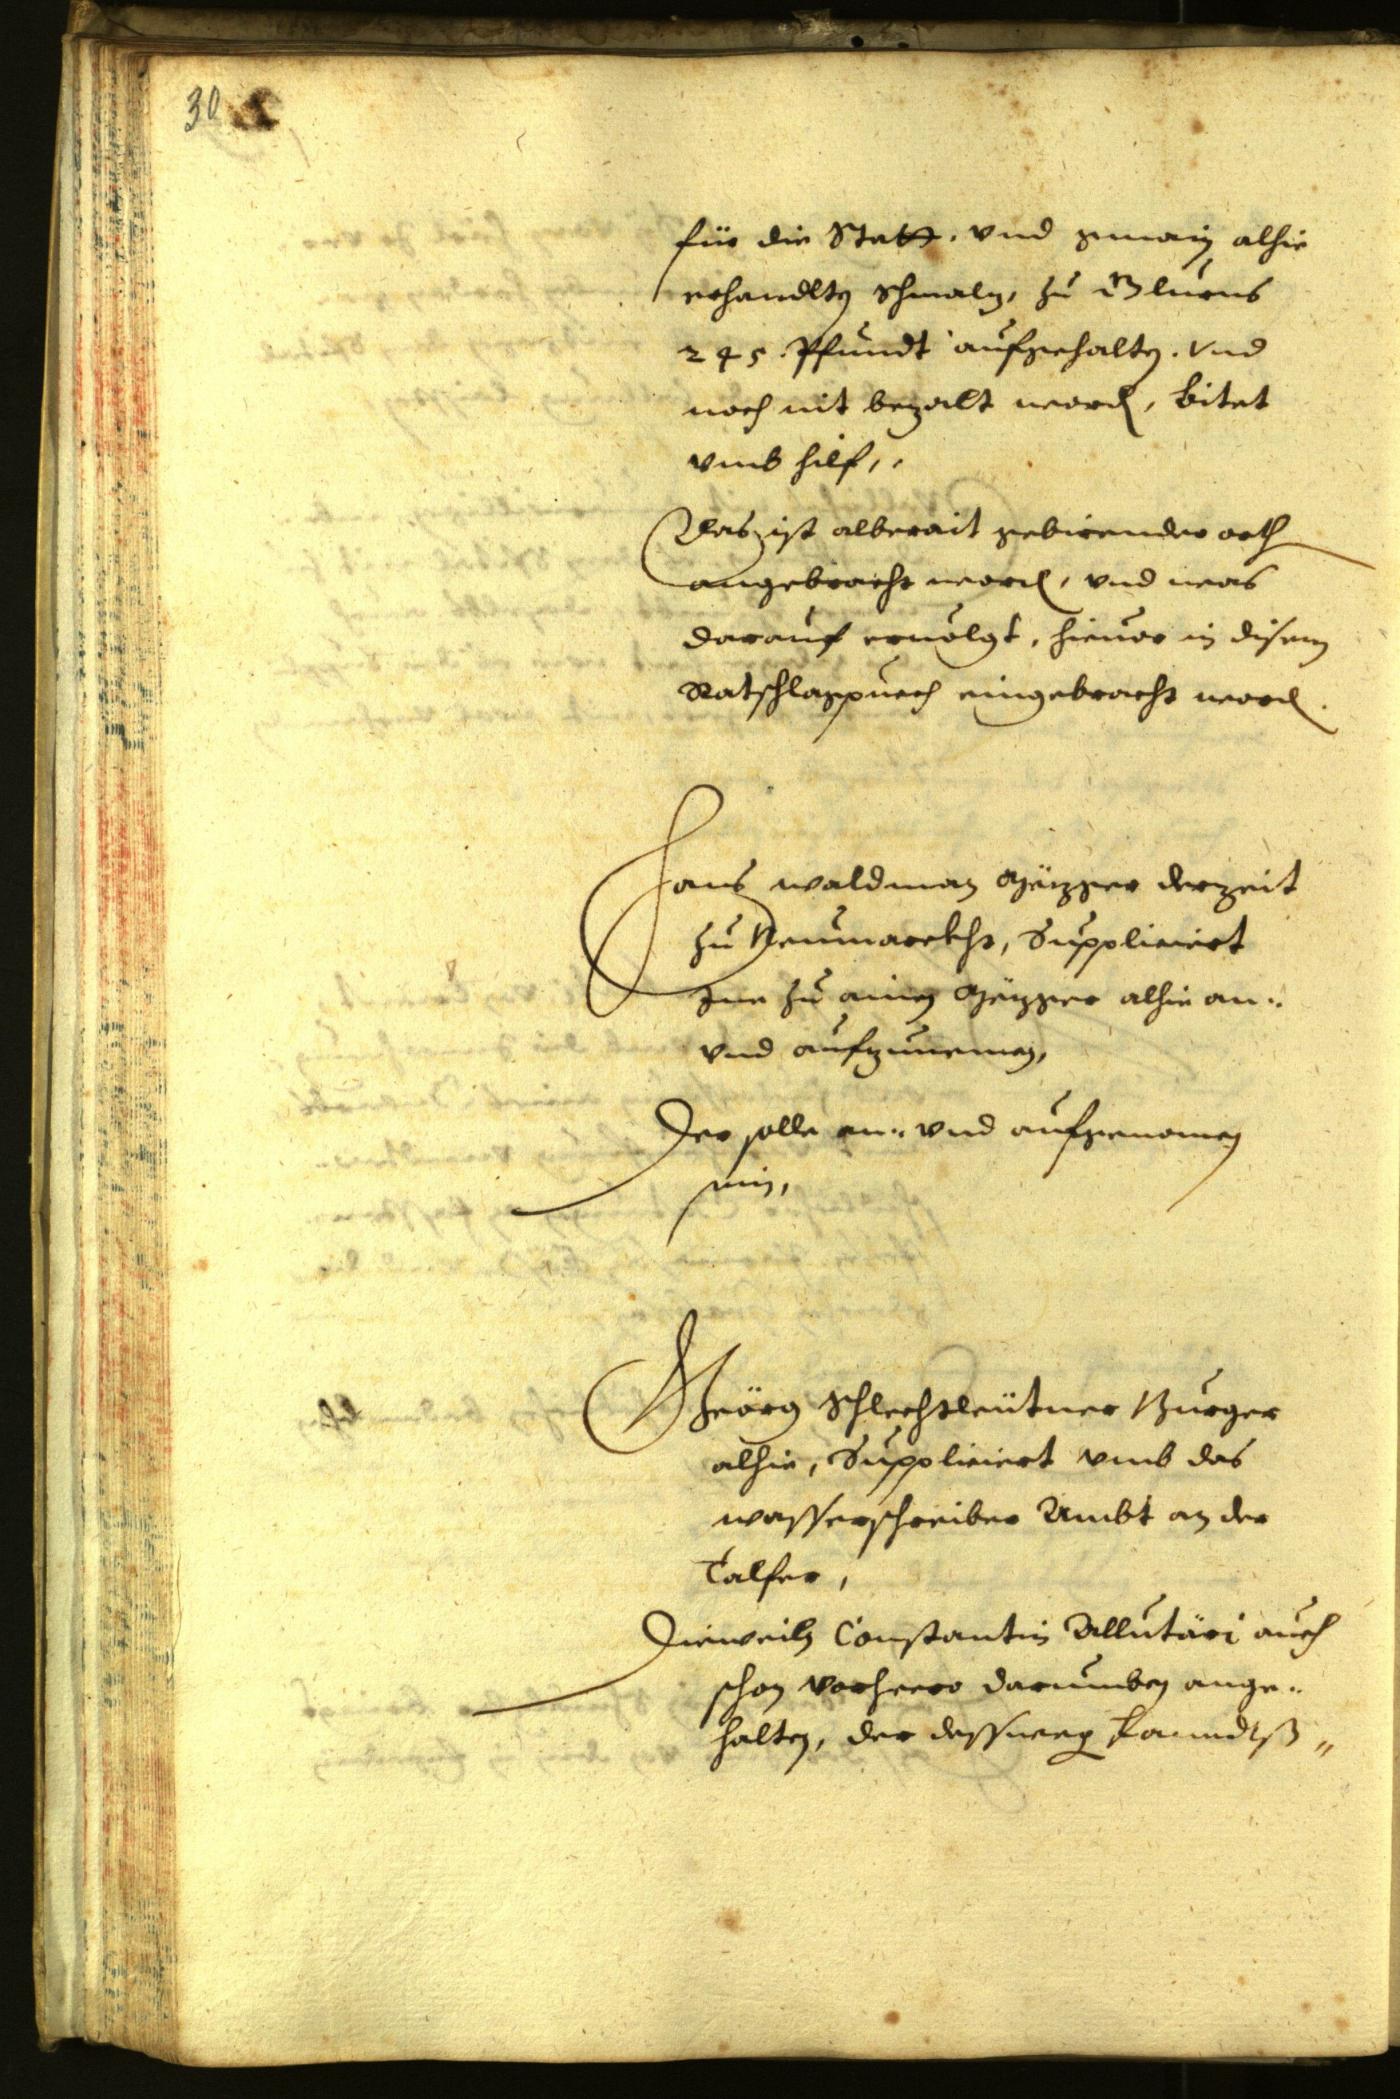 30
für die Statt. vnd gmain alhie
erhandlten Schmalz, zu Glurns
245. Pfundt aufgehalten. Vnd
noch nit bezalt word, bitet
vmb hilf,.
Das ist alberait gebirender orth
angebracht word, vnd was
darauf eruolgt, hieuor in disem
Ratschlagpuech eingebracht word.
Hans waldman Mezger derzeit
zu Neumarckht, Suppliciert
Ine zu ainen Mezger alhie an..
vnd aufzunemen,
Der solle an.. vnd aufgenomen
sein,
Geörg Schlechtleütner Burger
alhie, Suppliciert vmb das
wasserschreiber Ambt an der
Talfer,
Dieweiln Constantin Allutäri auch
schon vorhero darumben ange..
halten, der desswegen